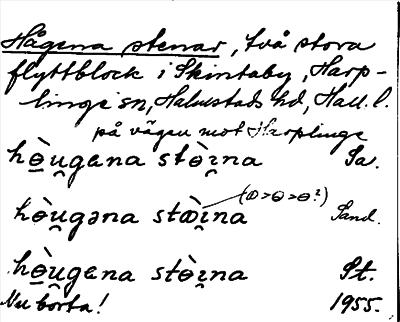 Hågena stenar, två stora
flyttblock i Skintaby, Harp-
linge sn, Halmstads hd, Hall. l.
på vägen mot Harplinge
hɵ̀u̯gana stɵ̀ɪ̯na Sa.
(ɷ>ɵ>ɵ?)
hɵ̀u̯gəna stɷ̀ɪ̯na Sand.
hɵ̀u̯gana stɵ̀ɪ̯na St.
Nu borta! 1955.